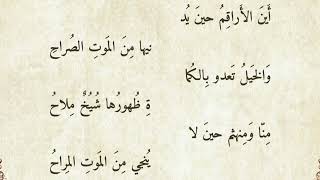 أَينَ الأَراقِمُ حينَ يُد
نيها مِنَ المَوتِ الصُراحِ
وَالخَيلُ تَعدو بِالكُما
ةِ ظُهورُها شُيُخٌ مِلاحُ
مِنّا وَمِنهُم حينَ لا
يُنجي مِنَ المَوتِ المِراحُ